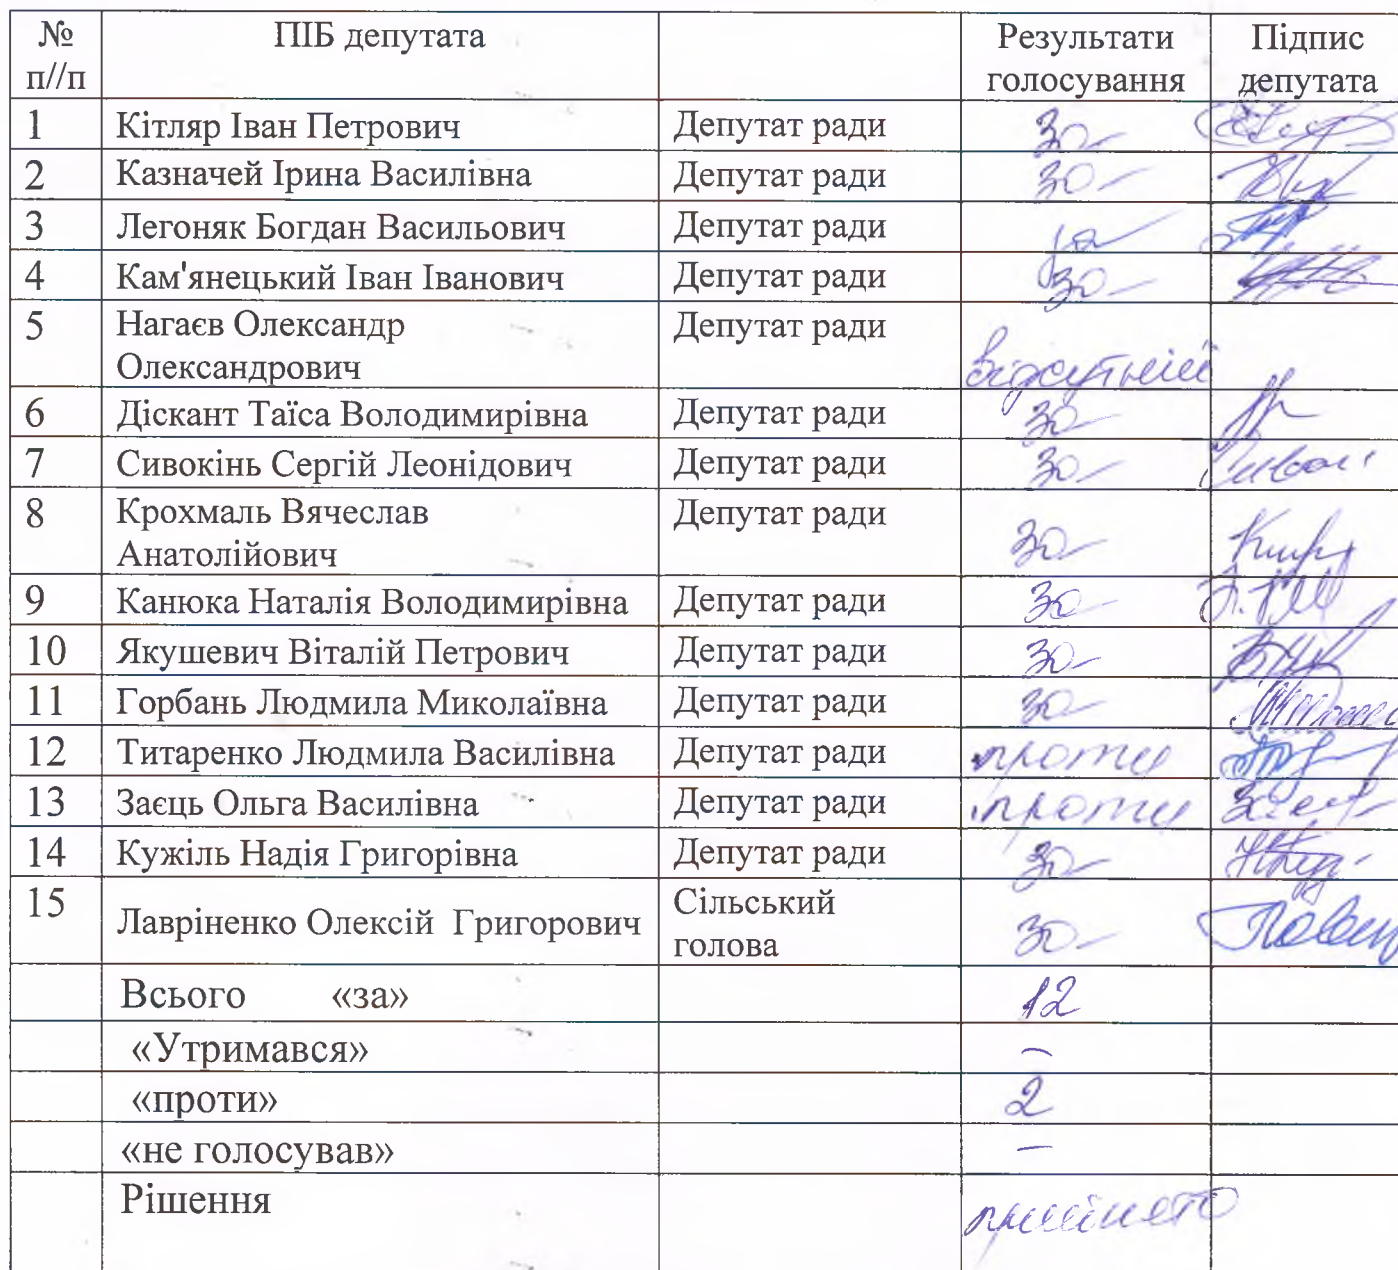 № ПІБ депутата Результати Підпис
п//п голосування депутата
1 Кітляр Іван Петрович Депутат ради за
2 Казначей Ірина Василівна Депутат ради за
3 Легоняк Богдан Васильович Депутат ради за
4 Кам'янецький Іван Іванович Депутат ради за
5 Нагаєв Олександр Депутат ради
Олександрович відсутній
6 Діскант Таїса Володимирівна Депутат ради за
7 Сивокінь Сергій Леонідович Депутат ради за
8 Крохмаль Вячеслав Депутат ради
Анатолійович за
9 Канюка Наталія Володимирівна Депутат ради за
10 Якушевич Віталій Петрович Депутат ради за
11 Горбань Людмила Миколаївна Депутат ради за
12 Титаренко Людмила Василівна Депутат ради проти
13 Заєць Ольга Василівна Депутат ради проти
14 Кужіль Надія Григорівна Депутат ради за
15 Лавріненко Олексій Григорович Сільський
голова за
Всього «за» 12
«Утримався» –
«проти» 2
«не голосував» –
Рішення прийнято